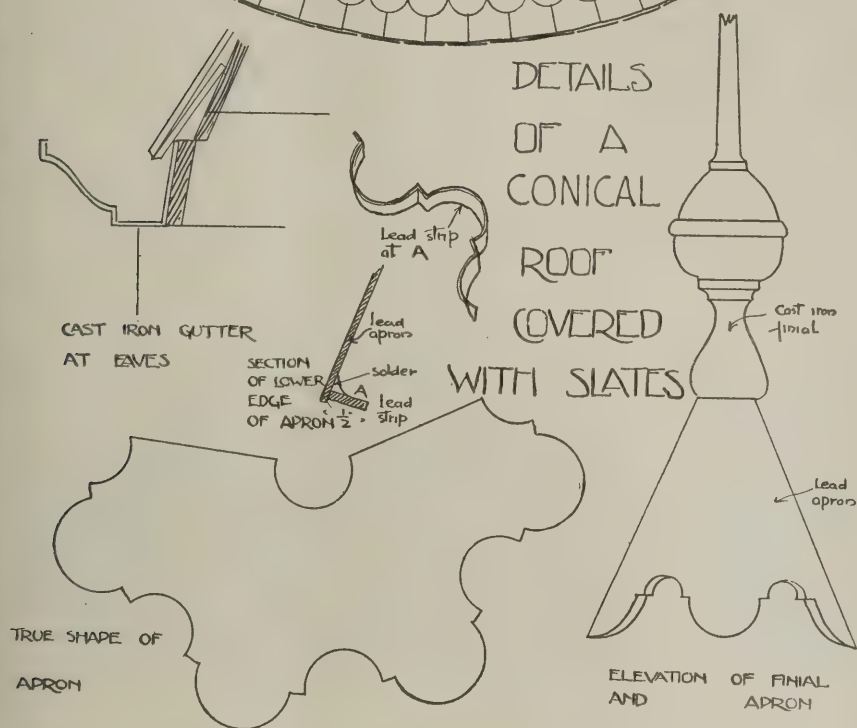 DETAILS
OF A
CONICAL
ROOF
COVERED
WITH SLATES
CAST IRON GUTTER
AT EAVES
Lead strip
at A
lead
apron
solder
A
lead
strip
SECTION
OF LOWER
EDGE
OF APRON
1/2"
Cast iron
finial
Lead
apron
TRUE SHAPE OF
APRON
ELEVATION OF FINIAL
AND APRON